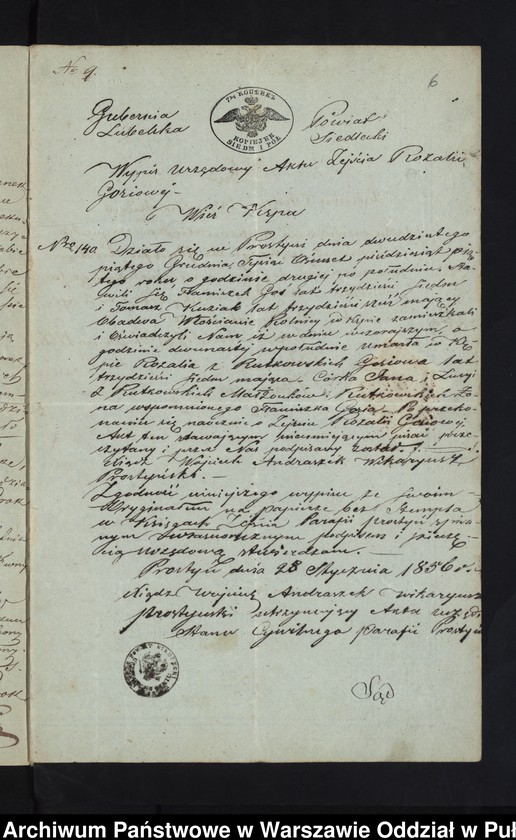 No 9.
6
7½ KOPIEEK
KOPIEJEK
SIEDM I PÓŁ
Gubernia
Lubelska
Powiat
Siedlecki
Wypis Urzędowy Aktu Zejścia Rozalii
Gosiowej.
Wieś Kępa
Nro 140. Działo się w Prostyni dnia dwudziestego
piątego Grudnia Tysiąc Ośmset pięćdziesiąt pią-
tego roku o godzinie drugiej po południu. Sta-
wili się Franciszek Goś lat trzydzieści siedm
i Tomasz Kuziak lat trzydzieści sześć mający
Obadwa Włościanie Rolnicy w Kępie zamieszkali
i Oświadczyli Nam, iż w dniu wczorajszym, o
godzinie dwunastej w południe umarła w Kę-
pie Rozalia z Rutkowskich Gosiowa lat
trzydzieści siedm mająca. Córka Jana i
z Rutkowskich Małżonków. Rutkowskich Żo-
na wspomnionego Franciszka Gosia. Po przeko-
naniu się naocznie o Zejściu Rozalii Gosiowej
Akt ten stawającym nieumiejącym pisać prze-
czytany i przez Nas podpisany został.
Xiądz Wojciech Andraszek Wikaryusz
Prostyński.
Zgodność niniejszego wypisu ze swoim
Oryginałem na papierze bez Stempla
w Księgach Zejścia Parafii Prostyń spisa-
nym własnoręcznym podpisem i pieczę-
cią urzędową stwierdzam.
Prostyń dnia 28 Stycznia 1856 r.
Xiądz Wojciech Andraszek wikaryusz
Prostyński utrzymujący Akta
Stanu Cywilnego parafii Prostyń
Sąd
Archiwum Państwowe w Warszawie Oddział w Puł